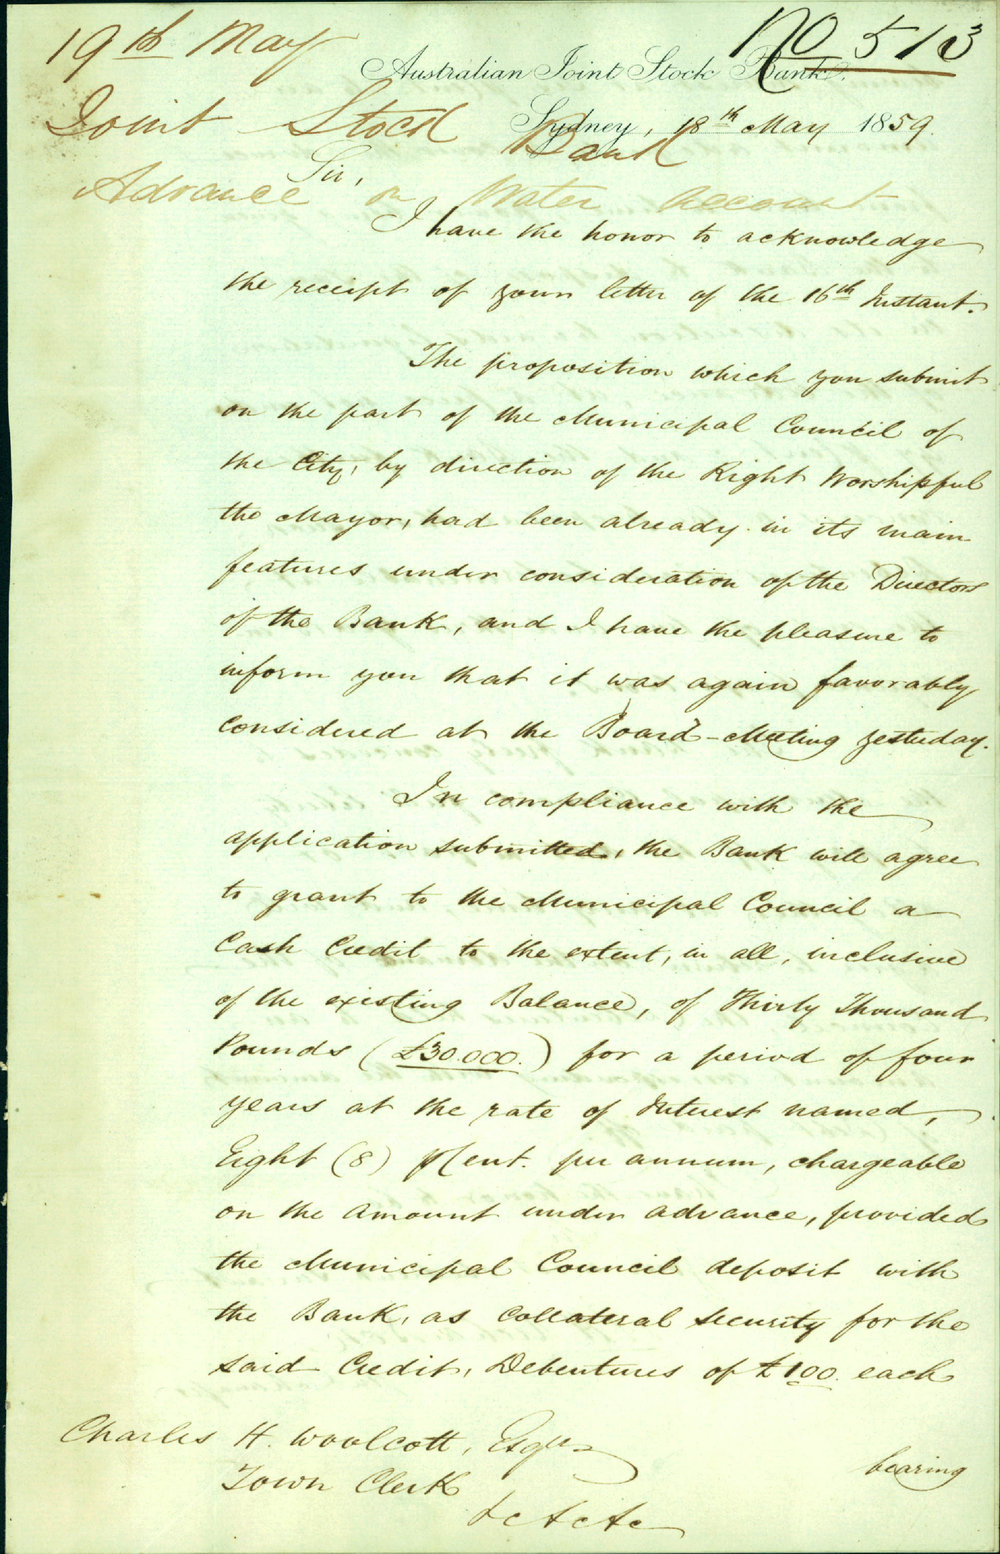 19th May
No 513
Australian Joint Stock Bank.
Joint Stock Bank
Sydney, 18th May 1859.
Advance on Water Account
Sir,
I have the honor to acknowledge
the receipt of your letter of the 16th Instant.
The proposition which you submit
on the part of the Municipal Council of
the City, by direction of the Right Worshipful
the Mayor, had been already in its main
features under consideration of the Directors
of the Bank, and I have the pleasure to
inform you that it was again favorably
considered at the Board-Meeting yesterday.
In compliance with the
application submitted, the Bank will agree
to grant to the Municipal Council a
Cash Credit to the extent, in all, inclusive
of the existing Balance, of Thirty Thousand
Pounds (£30.000.) for a period of four
years at the rate of Interest named,
Eight (8) p Cent. per annum, chargeable
on the Amount under advance, provided
the Municipal Council deposit with
the Bank, as Collateral Security for the
said Credit, Debentures of £100 each
Charles H. Woolcott, Esqre
Town Clerk
&c &c &c
bearing